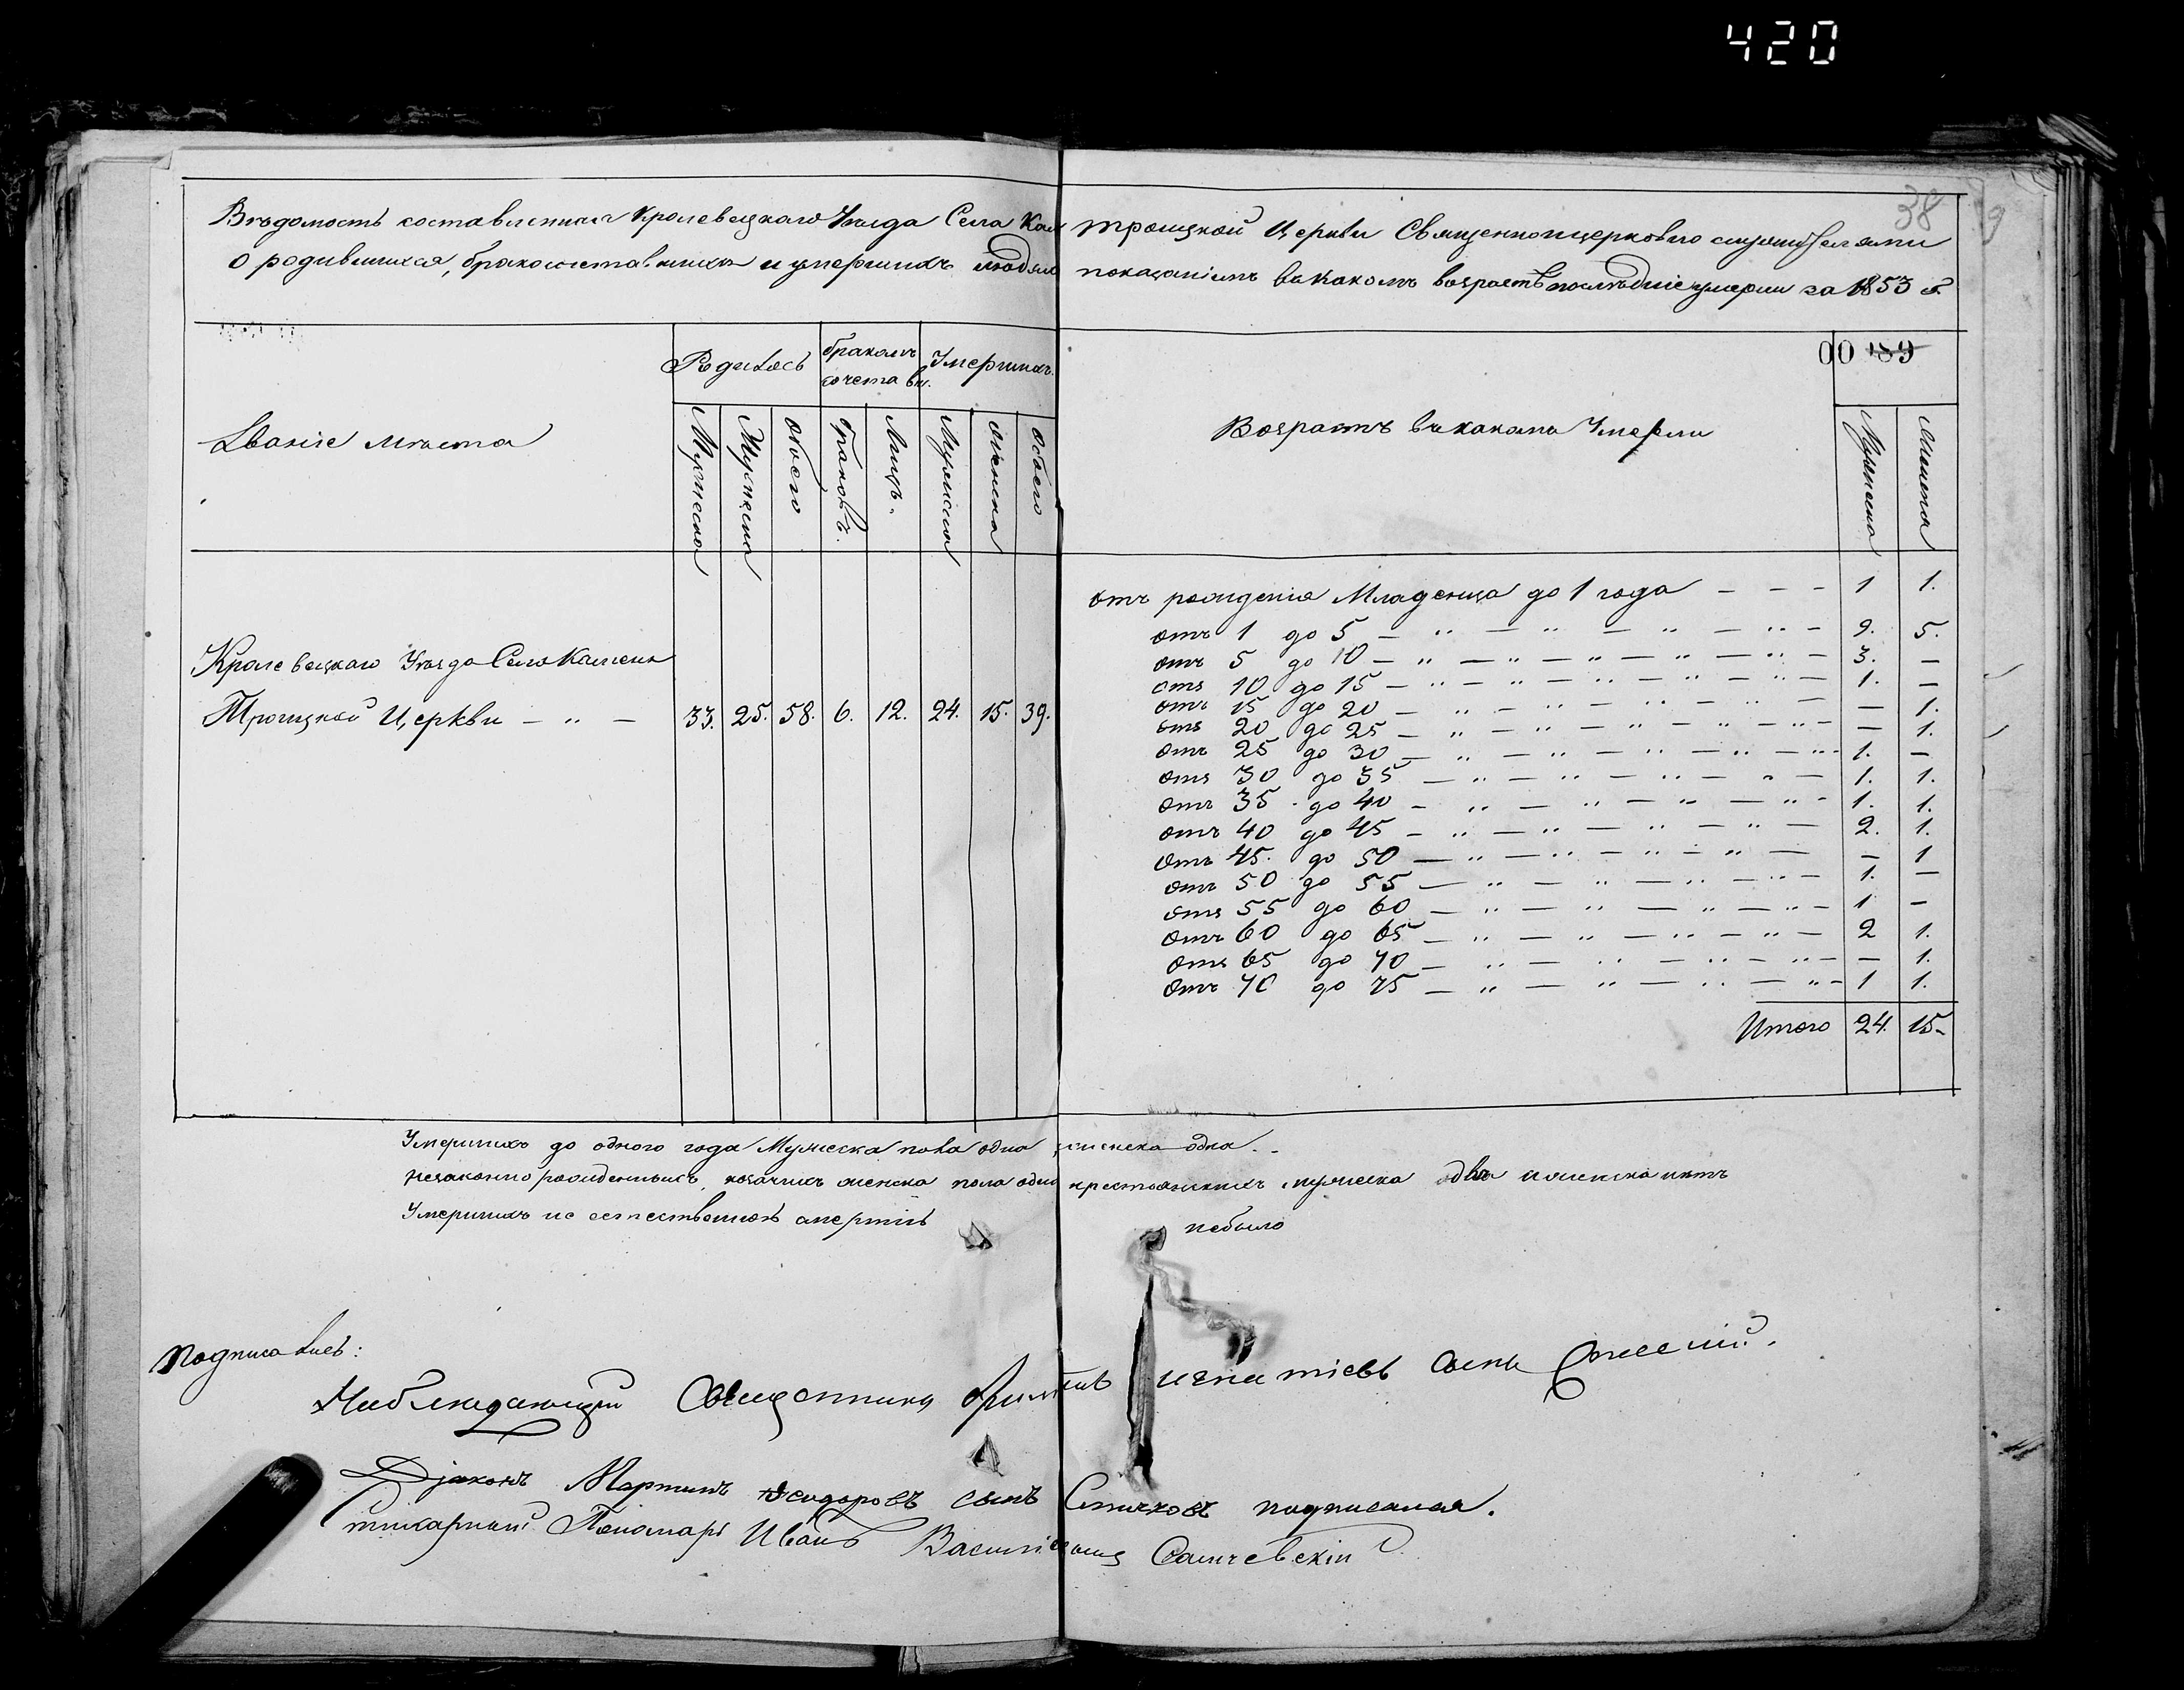 420
38
Вѣдомость составленная Кролевецкаго Уѣзда Села Кам Троицкой Церкви Священноцерковно служителями
о родившихся, бракосочетавшихся и умершихъ людях показаніемъ въ какомъ возрастѣ послѣдніе умерли за 1853 г.
00 189
Званіе мѣста
Родилось
бракомъ сочетавш.
Умершихъ
Мужеска
Женска
Обоего
Браковъ.
Лицъ.
Мужеска
женска
обоего
Возрастъ въ какомъ Умерли
Мужеска
Женска
Кролевецкаго Уѣзда Села Каменя
Троицкой Церкви — „ — 33. 25. 58. 6. 12. 24. 15. 39.
отъ рожденія Младенца до 1 года — — — 1 1.
отъ 1 до 5 — „ — „ — „ — „ — 9. 5.
отъ 5 до 10 — „ — „ — „ — „ — „ — 3. —
отъ 10 до 15 — „ — „ — „ — „ — „ — 1. —
отъ 15 до 20 — „ — „ — „ — „ — — 1.
отъ 20 до 25 — „ — „ — „ — „ — „ — — 1.
отъ 25 до 30 — „ — „ — „ — „ — „ 1. —
отъ 30 до 35 — „ — „ — „ — „ — 1. 1.
отъ 35 до 40 — „ — „ — „ — „ — 1. 1.
отъ 40 до 45 — „ — „ — „ — „ — 2. 1.
отъ 45. до 50 — „ — „ — „ — „ — — 1
отъ 50 до 55 — „ — „ — „ — „ — 1. —
отъ 55 до 60 — „ — „ — „ — „ — 1 —
отъ 60 до 65 — „ — „ — „ — „ — 2 1.
отъ 65 до 70 — „ — „ — „ — „ — — 1.
отъ 70 до 75 — „ — „ — „ — „ — 1 1.
Итого 24. 15.
Умершихъ до одного года Мужеска пола одна женска одна.
незаконно рожденныхъ, козачихъ женска пола одна крестьянскихъ мужеска одва и женска нѣтъ
Умершихъ не естественною смертію небыло
Подписались:
Наблюдающій Священникъ Игнатіевъ сынъ
Діаконъ Мартинъ Ѳеодоровъ сынъ подписался.
Пономарь Иванъ